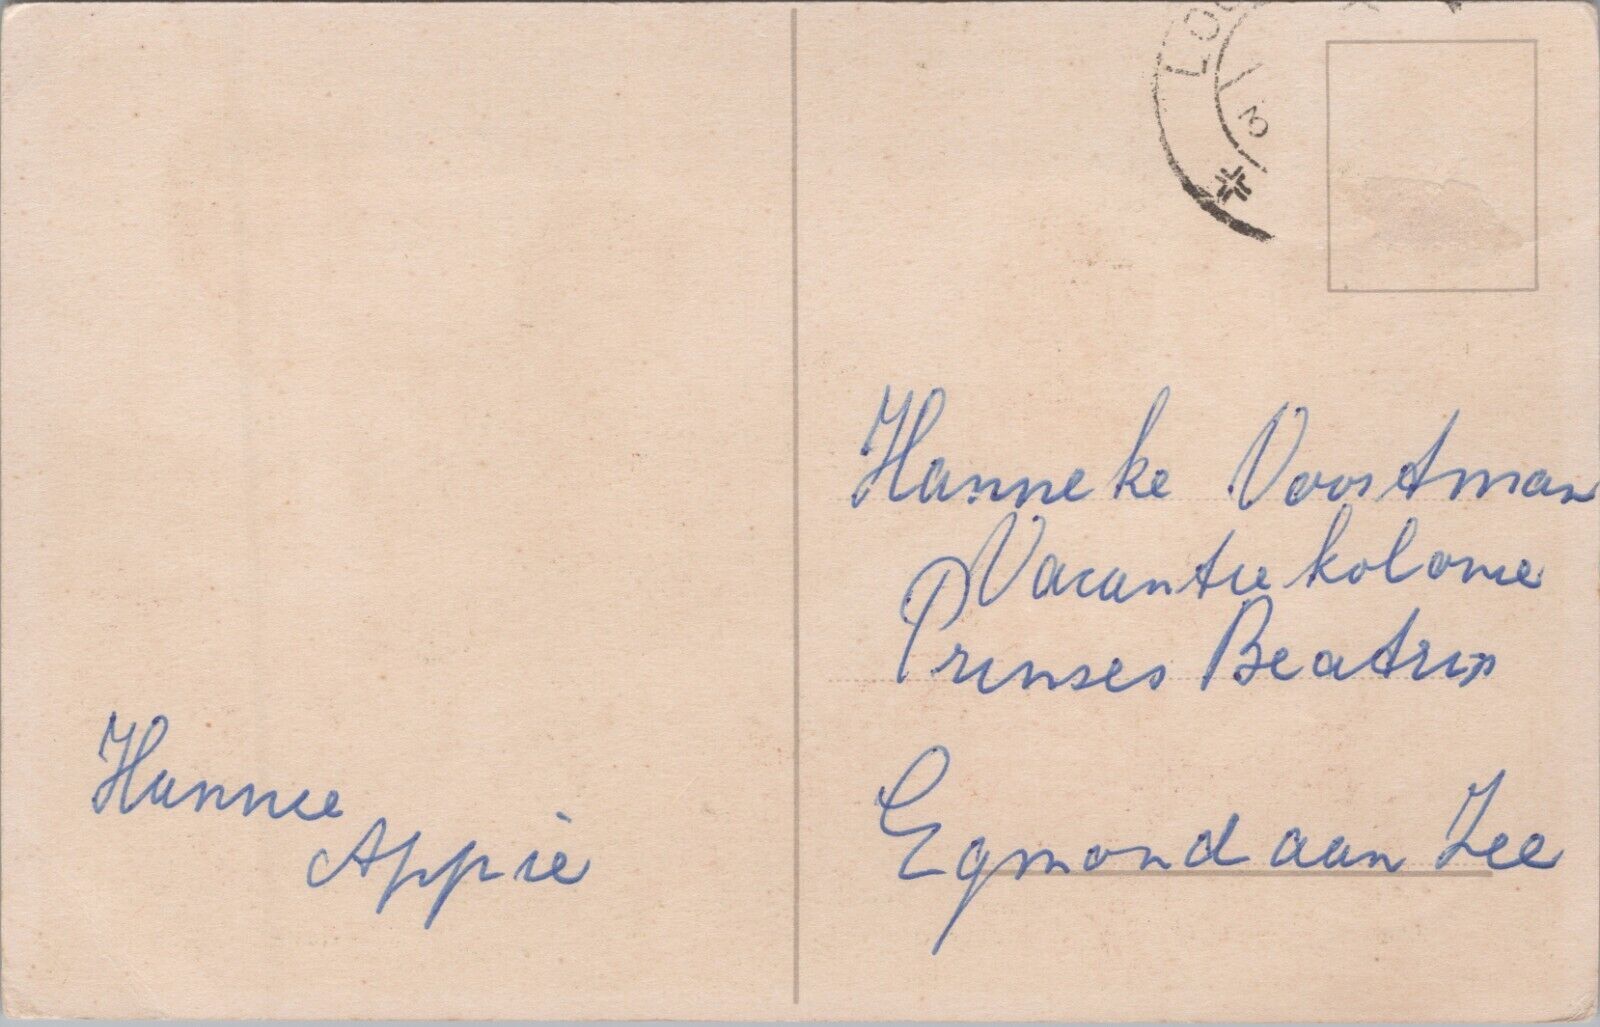 Hannie
Appie
LOC
3
Hanneke Voortman
Vacantiekolonie
Prinses Beatrix
Egmond aan Zee